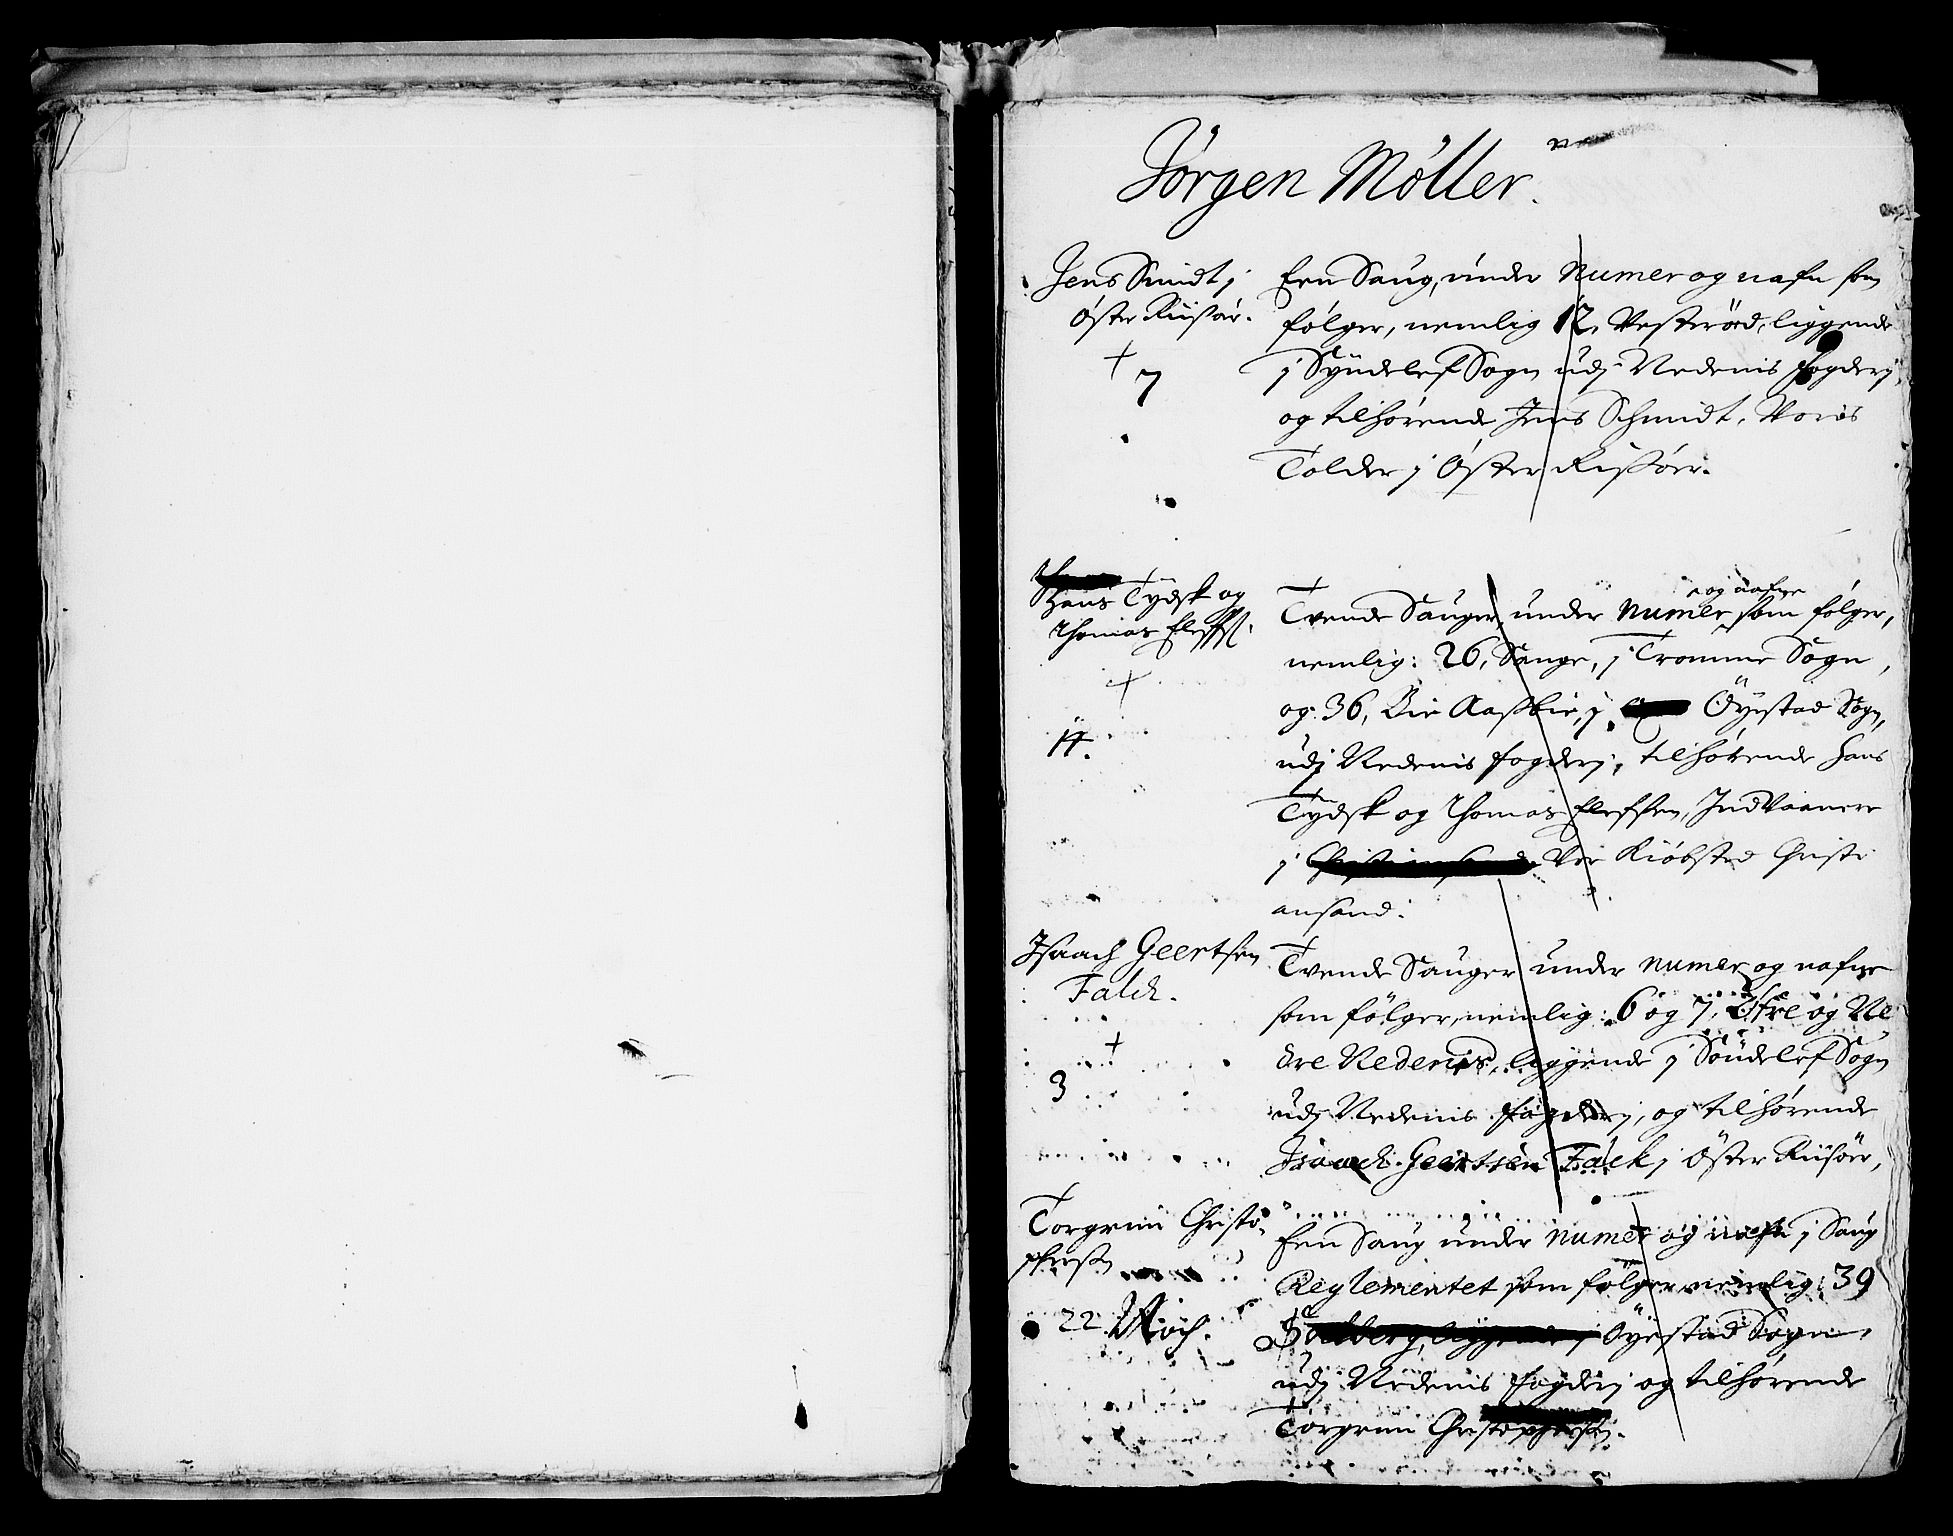 Jörgen Möller.
Jens Smidt j
Öster Riisöer.
+
7
Een Saug, under Numer og nafn som
følger, nemlig 12, Vesteröd, liggende
j Syndelef Sogn udj Nedenis fogderj,
og tilhörende Jens Schmidt, Voris
Tolder j Öster Riisöer.
Hans Tydsk og
Thomas Elefs:
+
14.
Tvende Sauger, under Numer og nafne som følger,
nemlig: 26, Sange, j Tromme Sogn,
og 36, Bie Aasbie, j Öyestad Sogn,
udj Nedenis fogderj, tilhörende Hans
Tydsk og Thomas Elefssen, Indvaanere
j Vor Kiöbsted Christi
ansand.
Isaach Geertsen
Falck.
+
3
Tvende Sauger under numer og nafne
som følger, nemlig: 6 og 7, Öfre og Ne
dre Nedenis, liggende j Söndelef Sogn
udj Nedenis fogderj, og tilhörende
Isaach Geertsen Falck j Öster Riisöer,
Torgrim Christo
phersen
22
Een Saug under numer og nafn j Saug
Reglementet som følger nemlig: 39
Solberg, liggende j Öyestad Sogn,
udj Nedenis fogderj og tilhörende
Torgrim Christophersen.